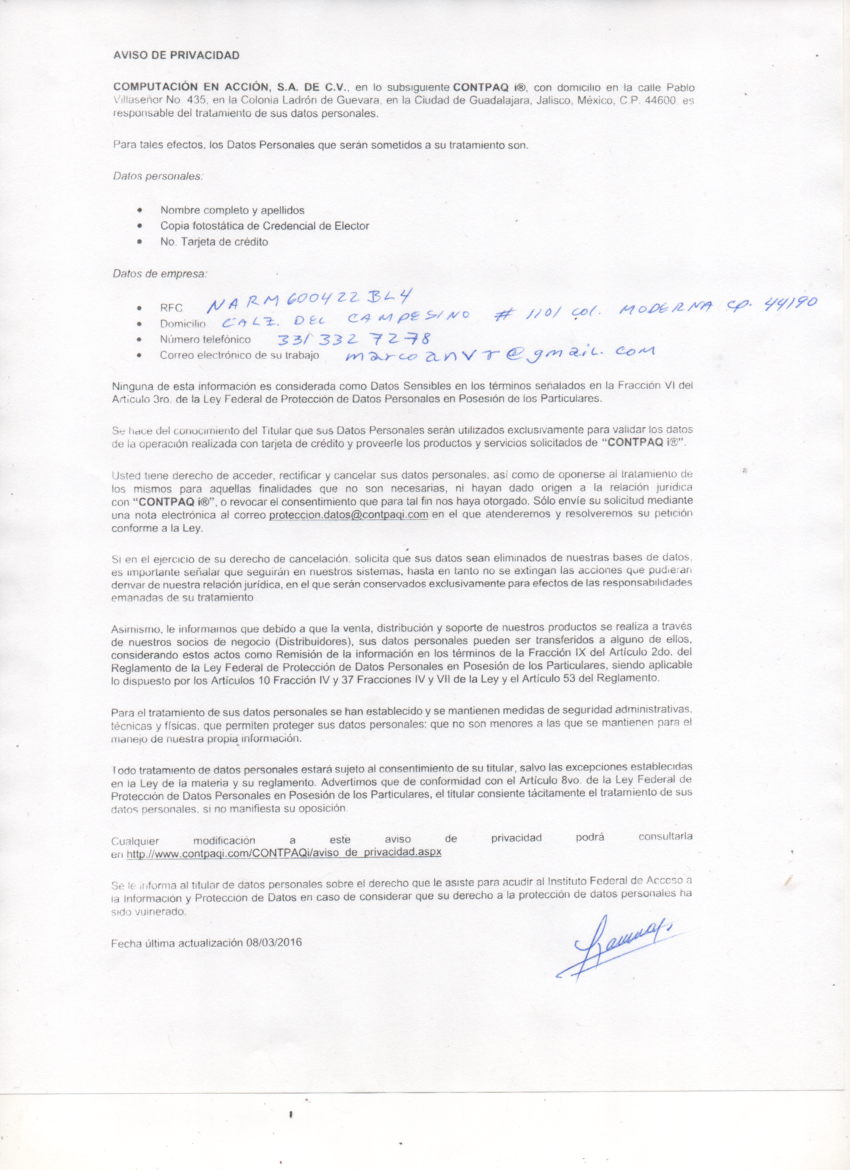 AVISO DE PRIVACIDAD
COMPUTACIÓN EN ACCIÓN, S.A. DE C.V., en lo subsiguiente CONTPAQ i®, con domicilio en la calle Pablo
Villaseñor No. 435, en la Colonia Ladrón de Guevara, en la Ciudad de Guadalajara, Jalisco, México, C.P. 44600, es
responsable del tratamiento de sus datos personales.
Para tales efectos, los Datos Personales que serán sometidos a su tratamiento son.
Datos personales:
• Nombre completo y apellidos
• Copia fotostática de Credencial de Elector
• No. Tarjeta de crédito
Datos de empresa:
• RFC NARM600422BL4
• Domicilio CALZ. DEL CAMPESINO # 1101 COL. MODERNA CP. 44190
• Número telefónico 331 332 7278
• Correo electrónico de su trabajo marcoanvr@gmail.com
Ninguna de esta información es considerada como Datos Sensibles en los términos señalados en la Fracción VI del
Artículo 3ro. de la Ley Federal de Protección de Datos Personales en Posesión de los Particulares.
Se hace del conocimiento del Titular que sus Datos Personales serán utilizados exclusivamente para validar los datos
de la operación realizada con tarjeta de crédito y proveerle los productos y servicios solicitados de “CONTPAQ i®”.
Usted tiene derecho de acceder, rectificar y cancelar sus datos personales, así como de oponerse al tratamiento de
los mismos para aquellas finalidades que no son necesarias, ni hayan dado origen a la relación jurídica
con “CONTPAQ i®”, o revocar el consentimiento que para tal fin nos haya otorgado. Sólo envíe su solicitud mediante
una nota electrónica al correo proteccion.datos@contpaqi.com en el que atenderemos y resolveremos su petición
conforme a la Ley.
Si en el ejercicio de su derecho de cancelación, solicita que sus datos sean eliminados de nuestras bases de datos,
es importante señalar que seguirán en nuestros sistemas, hasta en tanto no se extingan las acciones que pudieran
derivar de nuestra relación jurídica, en el que serán conservados exclusivamente para efectos de las responsabilidades
emanadas de su tratamiento
Asimismo, le informamos que debido a que la venta, distribución y soporte de nuestros productos se realiza a través
de nuestros socios de negocio (Distribuidores), sus datos personales pueden ser transferidos a alguno de ellos,
considerando estos actos como Remisión de la información en los términos de la Fracción IX del Artículo 2do. del
Reglamento de la Ley Federal de Protección de Datos Personales en Posesión de los Particulares, siendo aplicable
lo dispuesto por los Artículos 10 Fracción IV y 37 Fracciones IV y VII de la Ley y el Artículo 53 del Reglamento.
Para el tratamiento de sus datos personales se han establecido y se mantienen medidas de seguridad administrativas,
técnicas y físicas, que permiten proteger sus datos personales; que no son menores a las que se mantienen para el
manejo de nuestra propia información.
Todo tratamiento de datos personales estará sujeto al consentimiento de su titular, salvo las excepciones establecidas
en la Ley de la materia y su reglamento. Advertimos que de conformidad con el Artículo 8vo. de la Ley Federal de
Protección de Datos Personales en Posesión de los Particulares, el titular consiente tácitamente el tratamiento de sus
datos personales, si no manifiesta su oposición.
Cualquier modificación a este aviso de privacidad podrá consultarla
en http://www.contpaqi.com/CONTPAQi/aviso_de_privacidad.aspx
Se le informa al titular de datos personales sobre el derecho que le asiste para acudir al Instituto Federal de Acceso a
la Información y Protección de Datos en caso de considerar que su derecho a la protección de datos personales ha
sido vulnerado.
Fecha última actualización 08/03/2016